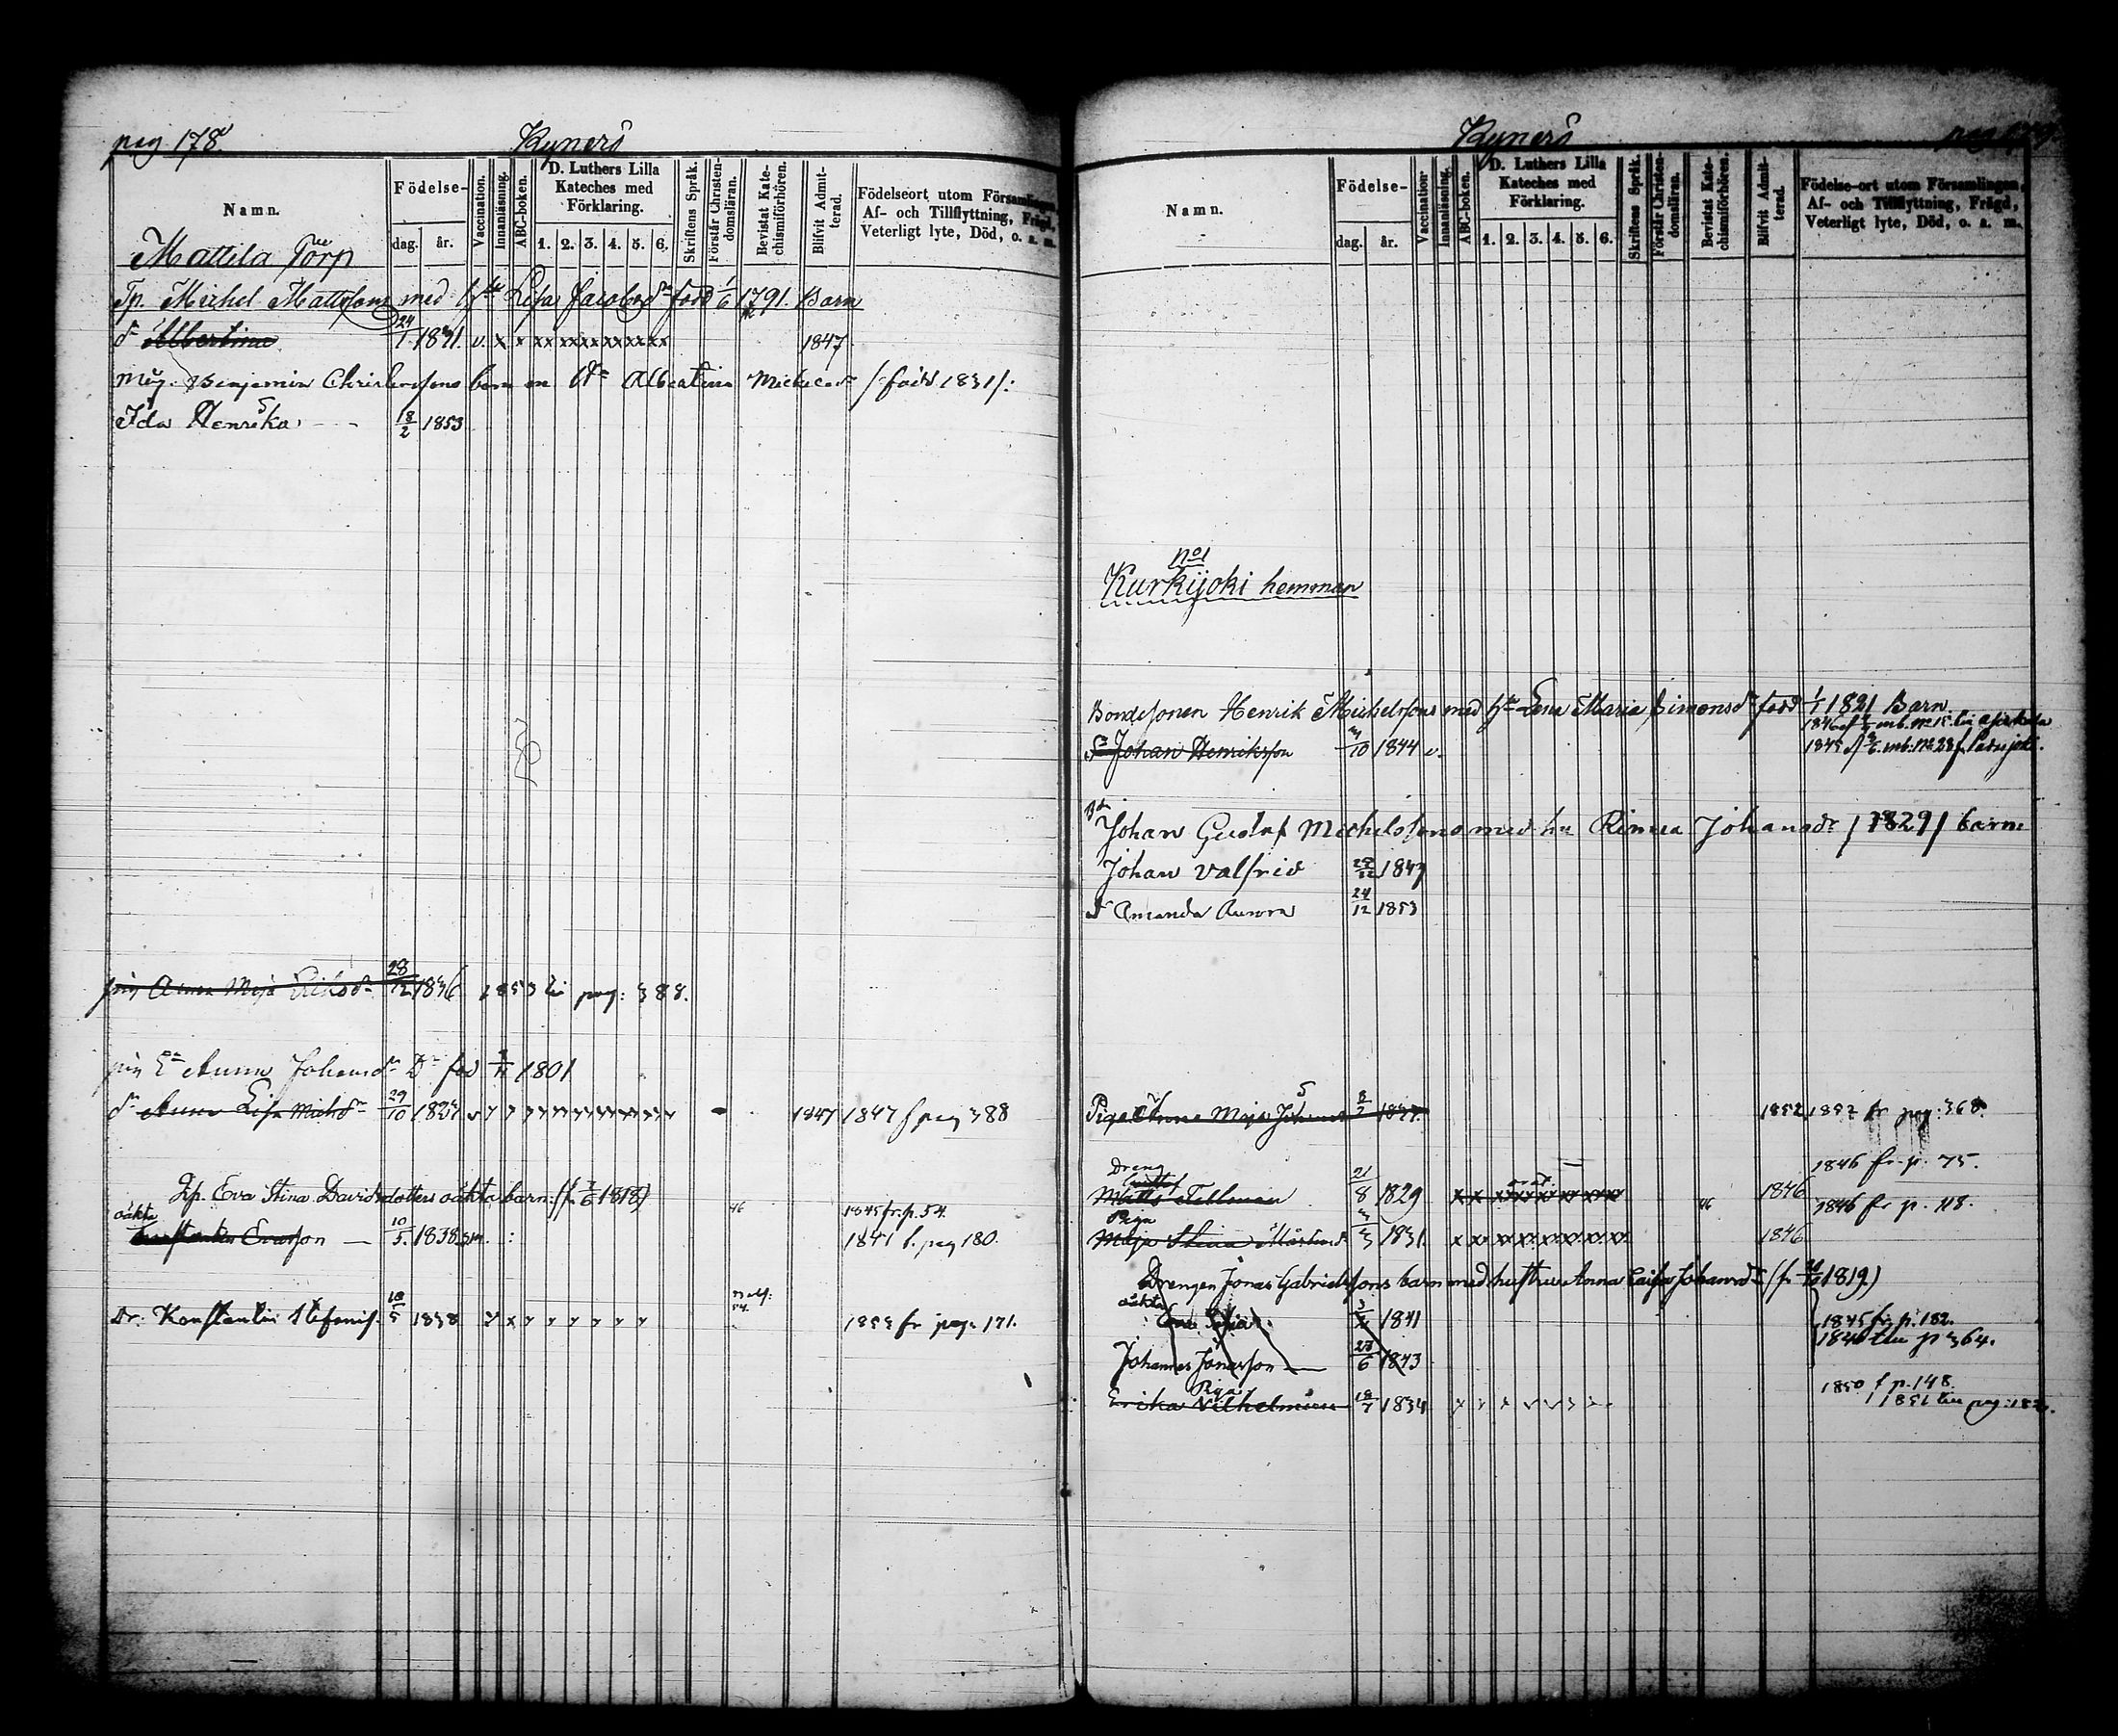 pag 178.
Kynerö
Namn.
Födelse-
dag.
år.
Vaccination.
Innanläsning.
ABC-boken.
D. Luthers Lilla
Kateches med
Förklaring.
1. 2. 3. 4. 5. 6.
Skriftens Språk.
Förstår Christen-
domsläran.
Bevistat Kate-
chismiförhören.
Blifvit Admit-
terad.
Födelseort utom Församlingen,
Af- och Tillflyttning, Frägd,
Veterligt lyte, Död, o. s. m.
Mattila Torp
Tp. Michel Mattssons med h Lisa Jacobsdr född 1/6 1791. Barn
dr Albertina 24/1 1831. v. x x xx xx xx xx xx xx 1847
Benjamin Christerssons barn m Albertina Michelsdr /född 1831/:
Ida Henrika 18/2 1853
pig Anna Maja Eriksdr 28/12 1836 1853 til pag: 388.
Anna Johansdr Dr född 1801
dr Anna Lisa Michdr 29/10 1827 v 1847 1847 f pag 388
Eva Stina Davidsdotters oäkta barn (f. 1818)
oäkta
Evasson — 10/5. 1838 46 1845 fr. p. 54.
1847 t. pag 180.
Dr: Konstantin Stefanss. 10/5 1838 1853 fr pag. 171.
Kynerö
Namn.
Födelse-
dag.
år.
Vaccination.
Innanläsning.
ABC-boken.
D. Luthers Lilla
Kateches med
Förklaring.
1. 2. 3. 4. 5. 6.
Skriftens Språk.
Förstår Christen-
domsläran.
Bevistat Kate-
chismiförhören.
Blifvit Admit-
terad.
Födelse-ort utom Församlingen,
Af- och Tillflyttning, Frägd,
Veterligt lyte, Död, o. s. m.
No 1
Kurkijoki hemman
Bondesonen Henrik Michelssons med h Lena Maria Simonsdr född 1/1 1821 Barn
Sn Johan Henriksson 10 1844 v.
Johan Gustaf Michelssons med hu Rinna Johansdr /1829/ barn:
Johan Valfrid 1847
dr Amanda Aurora 24/12 1853
Piga Anna Maja Johansdr 1852 1852 fr pag: 368.
Dreng
Matts Tallman 21/8 1829 46 1846 1846 fr. p. 75.
Piga
Maja Stina Mårtensdr 1831 1846 1846 fr p. 118.
Drengen Jonas Gabrielssons barn med hustru Anna Caisa Johansdr (f. 1819)
oäkta
Eva Sofia 1841 1845 fr. p. 182.
1846 till p 364.
Johannes Jonasson — 6 1843
Piga
Erika Vilhelmina 18/7 1834 1850 f p. 148.
1851 till pag: